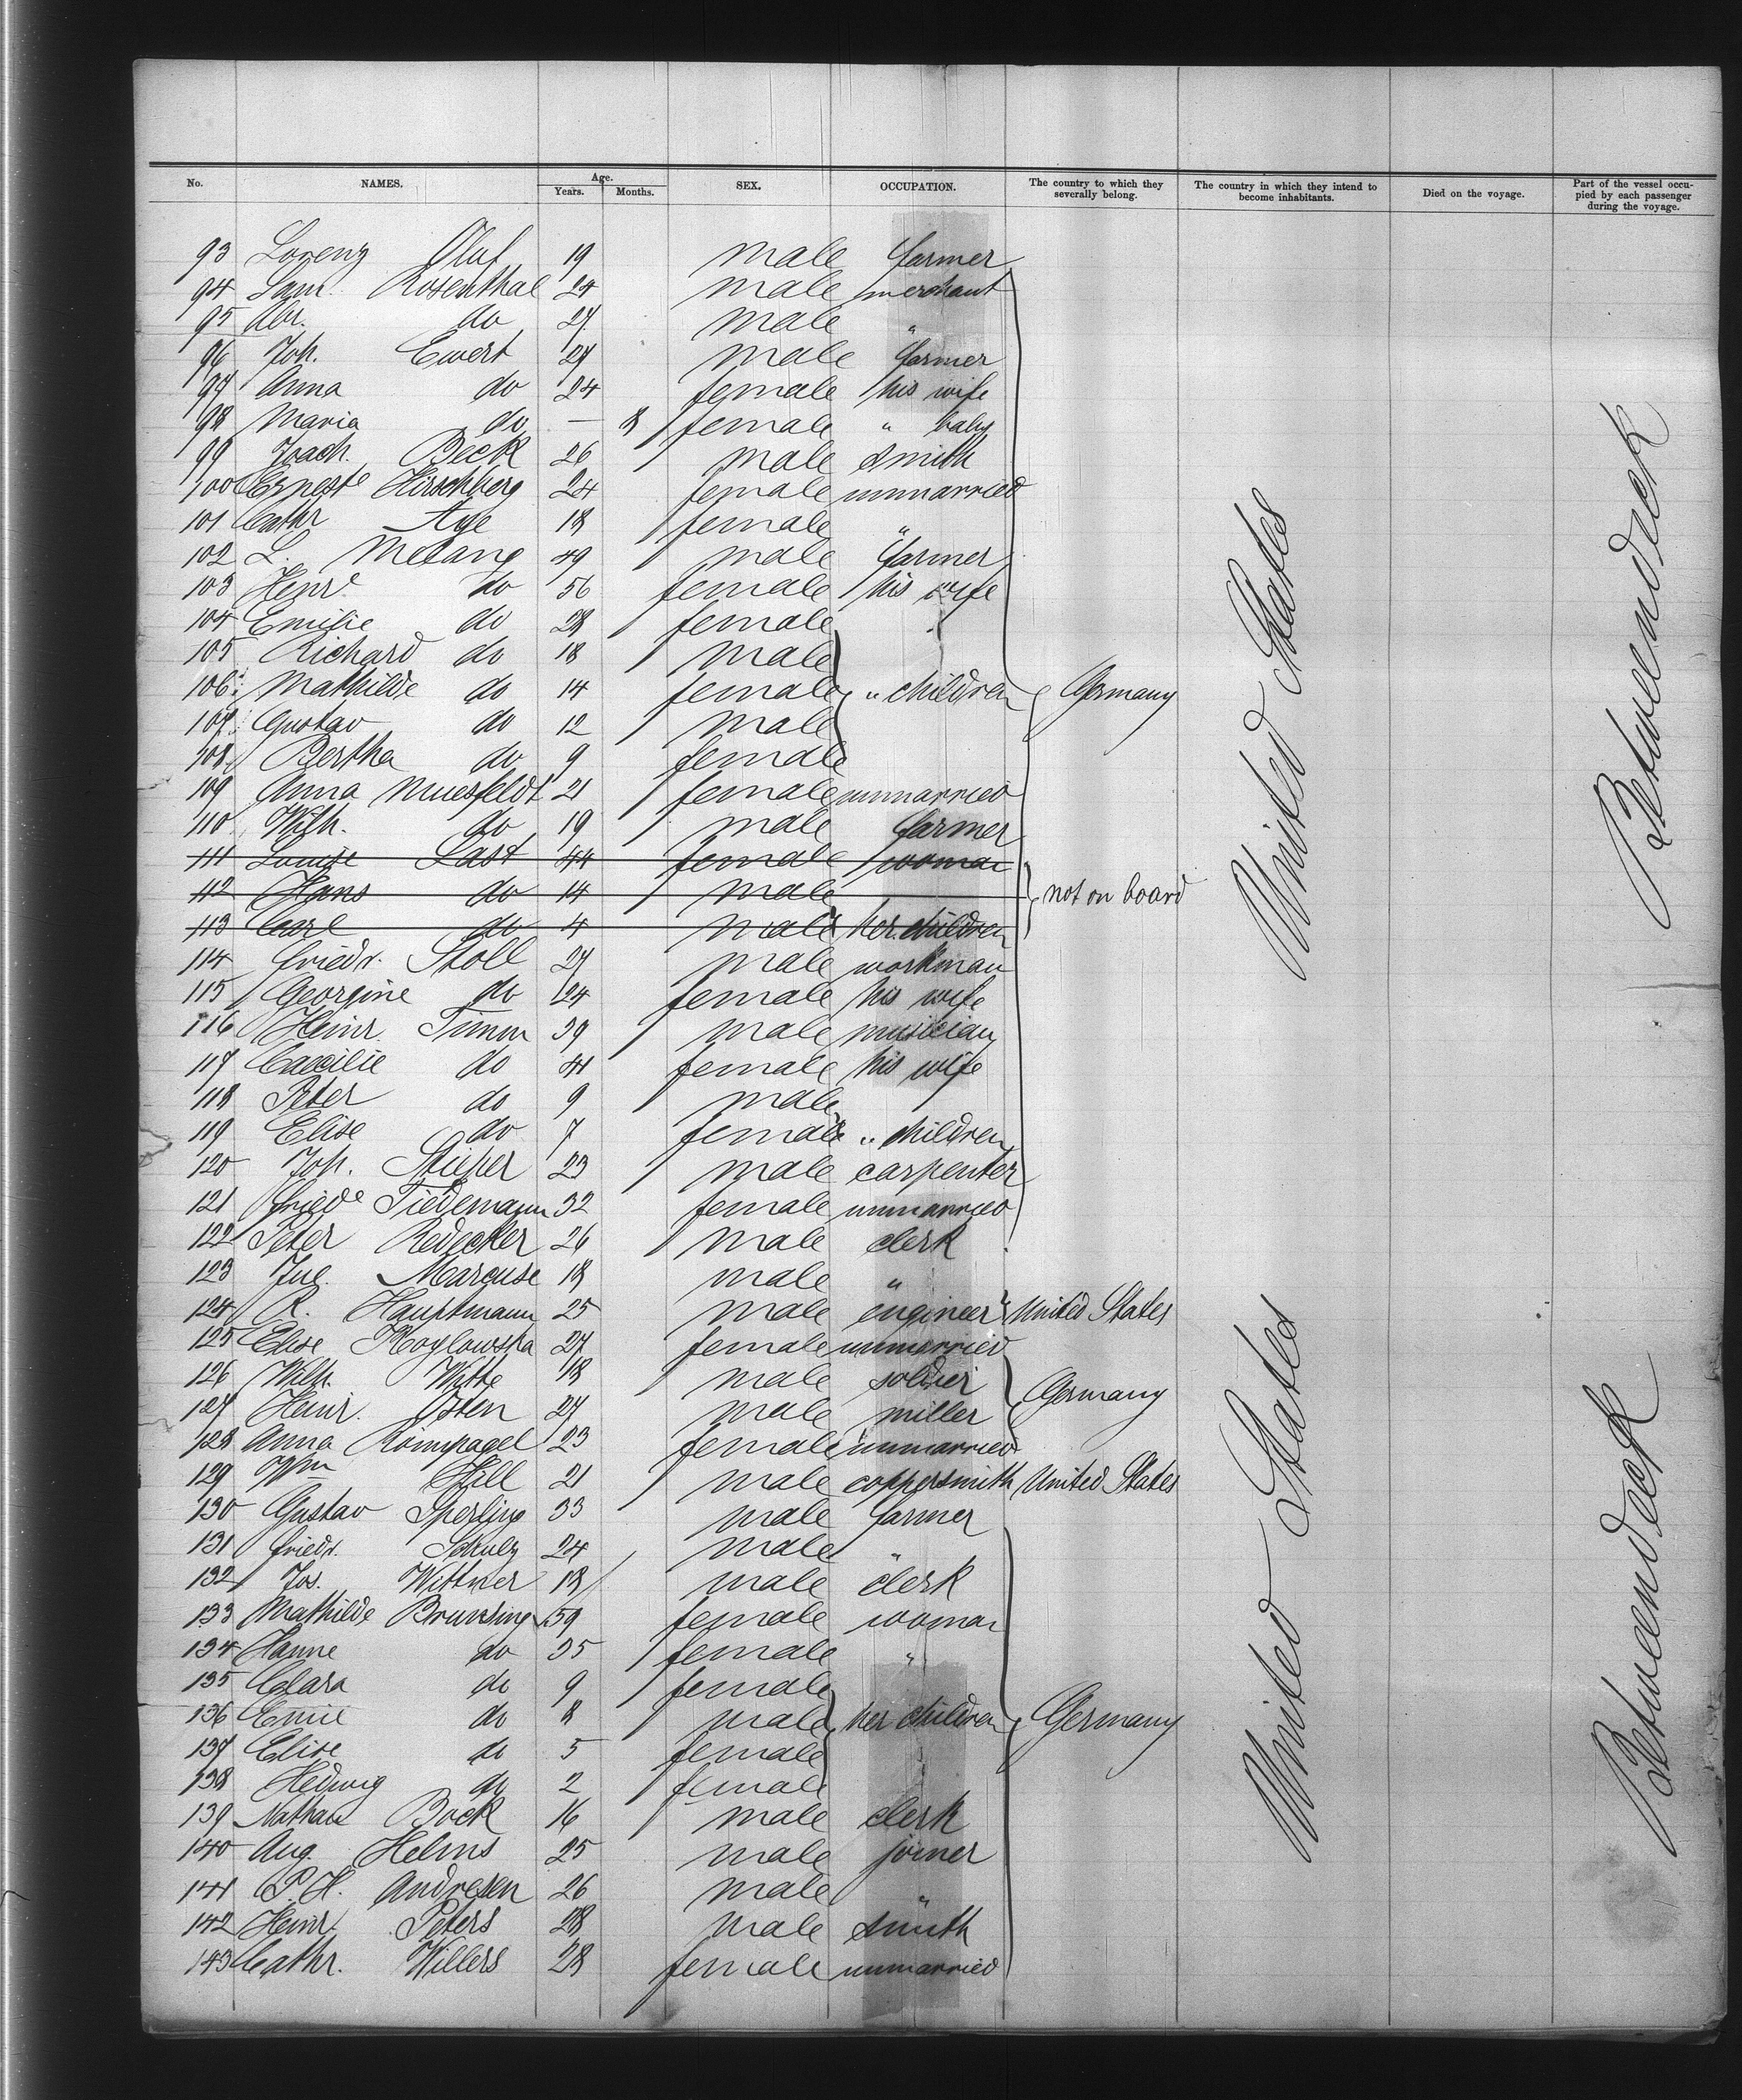 No. NAMES. Age. Years. Months. SEX. OCCUPATION. The country to which they severally belong. The country in which they intend to become inhabitants. Died on the voyage. Part of the vessel occupied by each passenger during the voyage.
93 Lorenz Oluf 19 male farmer
94 Sam. Rosenthal 24 male merchant
95 Abr. do 27 male "
96 Joh. Ewert 27 male farmer
97 Anna do 24 female his wife
98 Maria do — 8 female " baby
99 Joach. Beck 26 male smith
100 Erneste Hirschberg 24 female unmarried
101 Cathr Aye 18 female "
102 L. 49 male farmer
103 Henre do 56 female his wife
104 Emilie do 28 female
105 Richard do 18 male
106 Mathilde do 14 female " children Germany
107 Gustav do 12 male
108 Bertha do 9 female
109 Anna Muesfeldt 21 female unmarried
110 Wilh. do 19 male farmer
111 Louise Last 44 female woman
112 Hans do 14 male not on board
113 Carl do 4 male her children
114 Friedr. Stoll 27 male workman
115 Georgine do 24 female his wife
116 Heinr. Timm 39 male musician
117 Caecilie do 41 female his wife
118 Peter do 9 male
119 Elise do 7 female " children
120 Joh. Stieper 23 male carpenter
121 Friede Tiedemann 32 female unmarried
122 Peter Redecker 26 male clerk
123 Jul. Marcuse 18 male "
124 R. Hauptmann 25 male engineer United States
125 Elise Kozlowska 27 female unmarried
126 Wilh. Witte 18 male soldier Germany
127 Heinr. Osten 27 male miller
128 Anna Römpagel 23 female unmarried
129 Wm Hill 21 male coppersmith United States
130 Gustav Sperling 33 male farmer
131 Friedr. Schulz 24 male "
132 Jos. Wittner 18 male clerk
133 Mathilde Brunsing 59 female woman
134 Hanne do 35 female "
135 Clara do 9 female
136 Emil do 8 male her children Germany
137 Elise do 5 female
138 Hedwig do 2 female
139 Nathan Bock 16 male clerk
140 Aug. Helms 25 male joiner
141 P. H. Andresen 26 male "
142 Heinr. Peters 28 male smith
143 Cathr. Willers 28 female unmarried
United States
United States
Betweendeck
Betweendeck